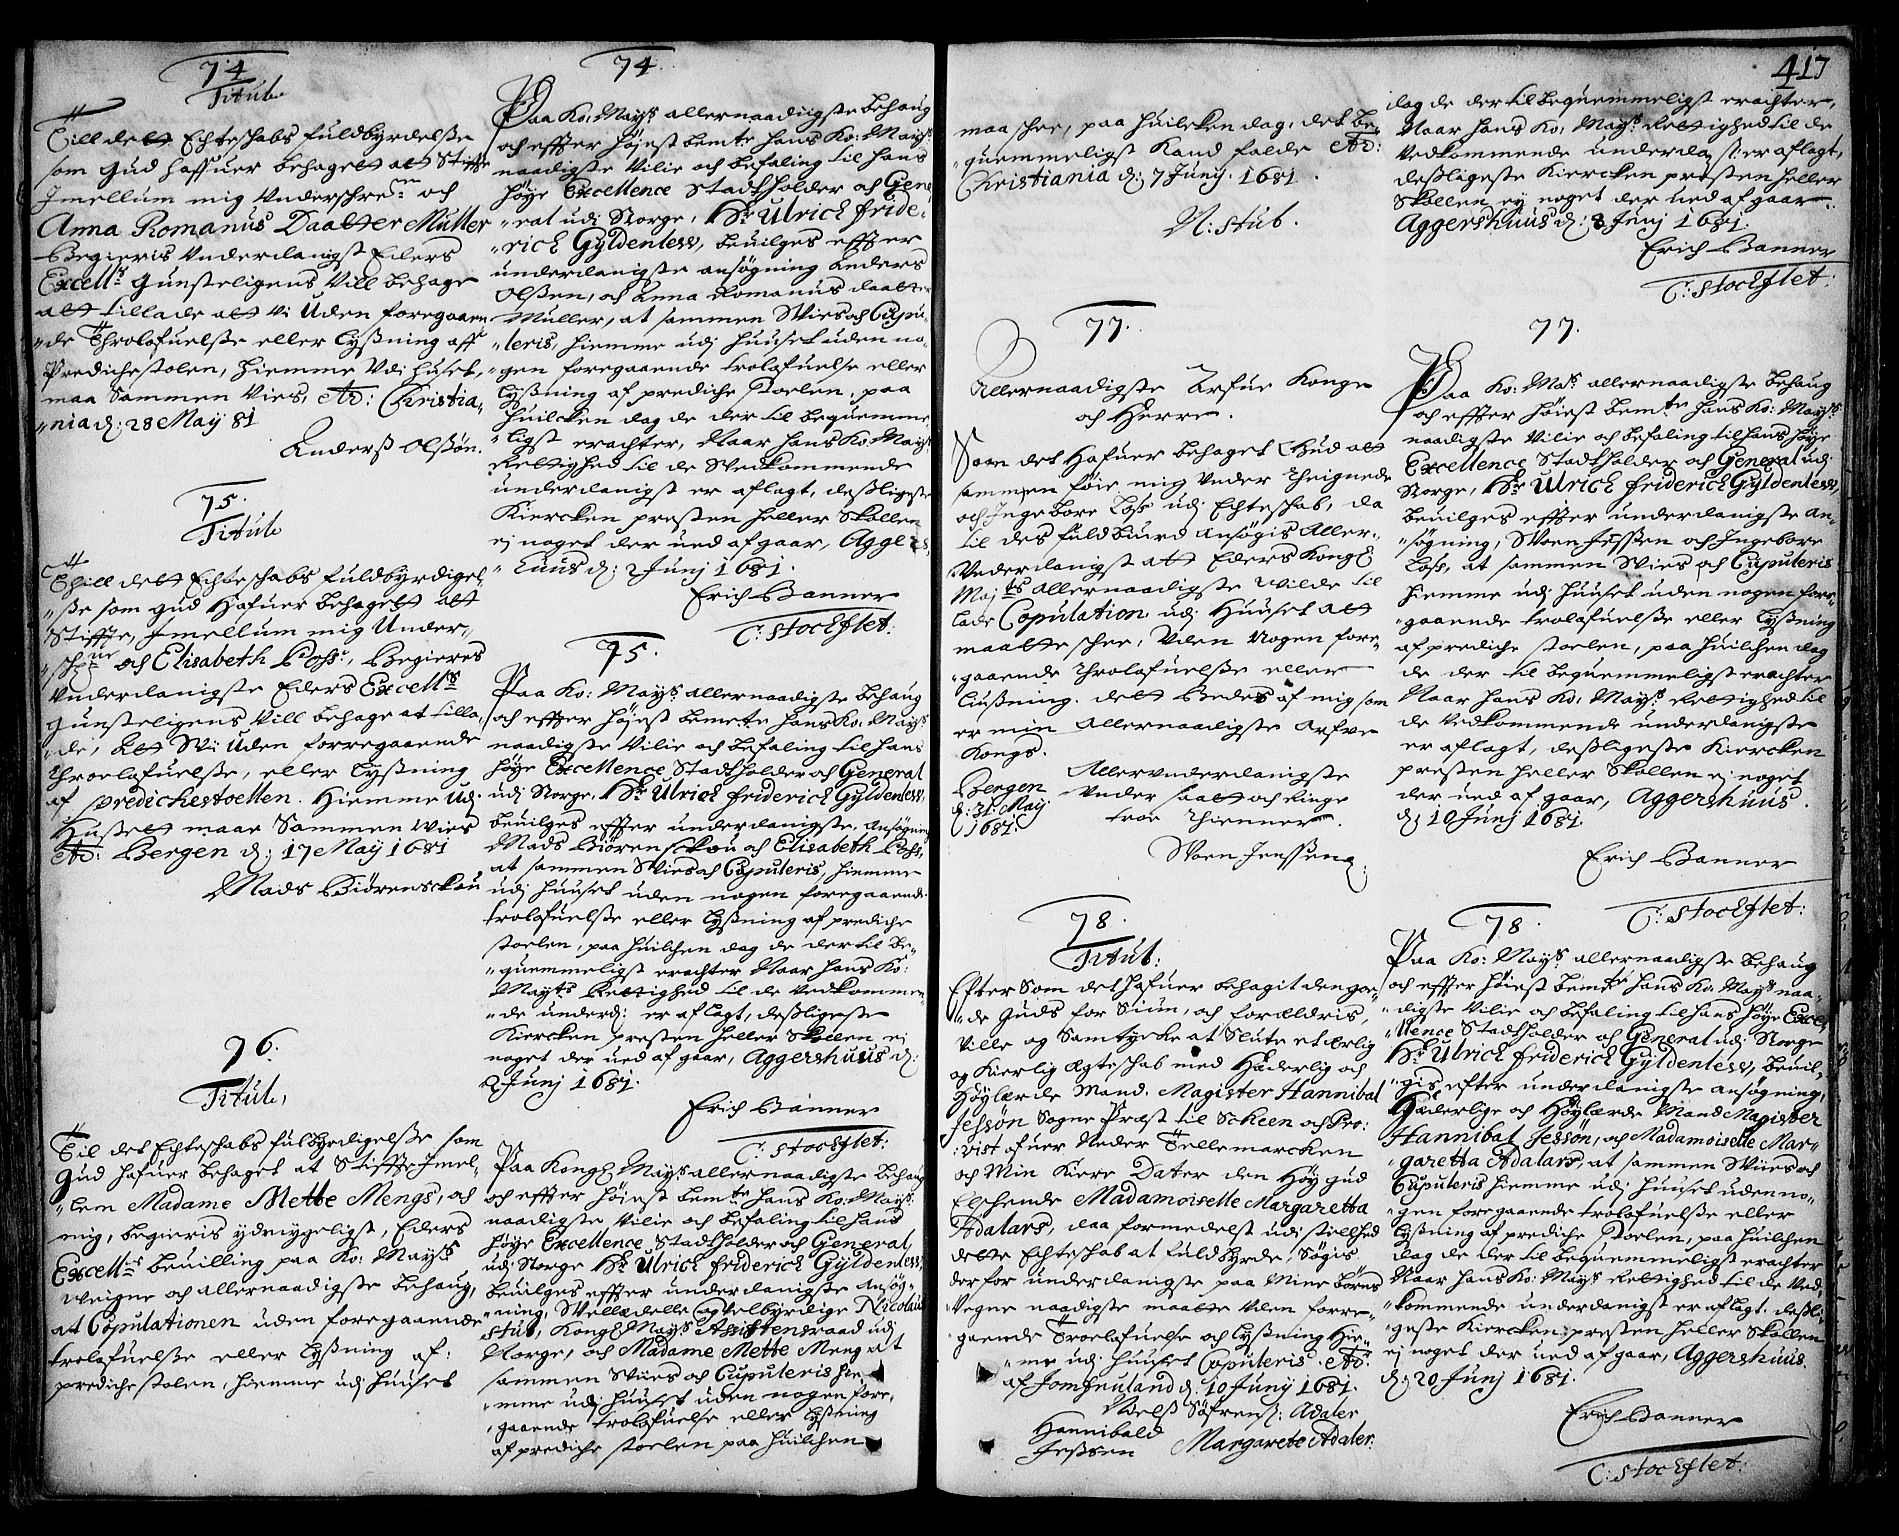 74
Titul.
Till dett Echteschabs fuldbyrdelse
som Gud haffuer behagett att Stiffte
Imellum mig Underschreffne och
Anna Romanus Daatter Muller
Begieris Underdanigst Eders
Excell: Gunsteligens Vill behage
att tillade att Vi Uden foregaaen
de Throlofuelsse eller Lyssning aff
Predichestolen, hiemme Udi huset,
maa Sammen Vies, Ad: Christia,
nia d: 28 May 81
Anderss Olssøn.
75.
Titul
Thill dett Echteschabs fuldbyrdigel,
sse som Gud Hafuer behagett att
Stiffte, Imellum mig Under,
schne och Elisabeth Poss, Begieres
Underdanigste Eders Excells
Gunsteligens Vill behage at tilla,
de, Att Wi Uden forregaaende
Throelofuelsse, eller Lyssning
af Predichestoellen. Hiemme Udi
Hussett maae Sammen Wies
Ad: Bergen d: 17 May 1681
Mads Biørensckou
76.
Titul,
Til det Echteschabs fuldbyrdigelsse som
Gud hafuer behaget at Stiffte Imel,
lem Madame Mette Mengs, och
mig, begieris ydmygeligst, Eders
Excells beuilling paa Ko: Mayts
weigne och allernaadigste behaug,
at Copulationen uden foregaaende
trolofuelsse eller Lyssning af:
prediche stolen, hiemme udj huuset
74.
Paa Ko: Mayts allernaadigste behaug
och effter høiest bemte hans Ko: Mayts
naadigste Vilie och befaling til hans
høye Excellence Stadtholder och Gene,
ral udj Norge, Hr Ulrich fride,
rich Gyldenlew, beuilges effter
underdanigste ansøgning Anders
Olssen, och Anna Romanus daatter
Muller, at sammen Wies och Cupu,
leris, hiemme udj huuset uden no,
gen foregaaende trolofuelse eller
Lyssning af prediche stoelen, paa
huilcken dag de der til beqvemme,
ligst erachter, Naar hans Ko: Mayts
Rettighed til de Vedkommende
underdanigst er aflagt, dessligeste
Kiercken presten heller Skollen
ej noget der ved af gaar, Aggers,
huus d: 2 Junj 1681.
Erich Banner
C: stockflet:
75.
Paa Ko: Mayts allernaadigste behaug
och effter høiest bemte hans Ko: Mayts
naadigste Vilie och befaling til hans
høye Excellence Stadtholder och General
udj Norge, Hr Ulrich friderich Gyldenlew,
beuilges effter underdanigste, ansøgning
Mads Biørensckou och Elisabeth Poss,
at sammen Wies och Cupuleris, hiemme
udj huuset uden nogen foregaaende
trolofuelsse eller Lyssning af prediche
stoelen, paa huilchen dag de der til be,
quemmeligst erachter Naar hans Ko:
Mayts Rettighed til de Vedkommen,
de underd: er aflagt, dessligeste
Kiercken presten heller Skollen ej
noget der ved af gaar, Aggershuus d:
2 Junj 1681.
Erich Banner
C: stockflet:
Paa Kongl Mayts allernaadigste behaug
och effter høiest bemte hans Ko: Mayts
naadigste Vilie och befaling til hans
høye Excellence Stadtholder och General
udj Norge Hr Ulrich friderich Gyldenlew,
beuilges effter underdanigste ansøg,
ning, Welædelle og velbyrdige Nicolaus
Stub, Kongl Mayts Assistensraad udj
Norge, och Madame Mette Meng at
sammen Wies och Cupuleris hie,
mme udj huuset uden nogen fore,
gaaende trolofuelse eller Lyssning
af prediche stoelen paa huilchen
417
maa schee, paa huilcken dag, det be,
quemmeligst Kand falde Ad:
Christiania d: 7 Junj: 1681.
N: Stub.
77.
Allernaadigste Arfue Konge
och Herre.
Som det Hafuer behaget Gud att
sammen føie mig Under Theignede
och Ingebore Loss udj Echteschab, da
til des fuldbiurd ansøgis Aller,
Underdanigst att Eders Kongl
Majts allernaadigste wilde til
lade Copulation udj Huuset att
maatte schee, Uden Nogen fore,
gaaende Throlofuelsse eller
liussning. dett bedes af mig som
er min Allernaadigste Arfue
Kongs.
Allerunderdanigste
Under saatt och Ringe
troe Thienner.
Bergen
d: 31 May
1681.
Swen Jenssen
78.
Titul:
Efter Som det hafuer behagit den goe,
de Guds for Siun, och forældris,
Ville og Samtycke at Slute et ærlig
og Kierlig ægteschab med Hæderlig och
Høylærde Mand. Magister Hannibal
Jessøn Sogne Præst til Scheen och Pro,
vist ofuer Neder Tellemarcken
och Min Kiere Dater den Høy Gud
Elschende Madamoiselle Margaretta
Adalars, daa formedelst udi stillhed
dette Echteschab at fuld byrde, Søgis
derfor underdanigste paa Mine børns
Vegne naadigste maatte Uden forre,
gaaende Troelofuelse och Lyssning Hie,
me udj huuset Copuleris. Ad:
af Jomfruland d: 10 Junj 1681.
Niels Søfrenss: Adaler
Hannibald
Jessen
Margarete Adaler.
dag de der til bequemmeligst erachter,
Naar hans Ko: Mayts Rettighed til de
Vedkommende underdanigst er aflagt,
dessligeste Kiercken presten heller
Skollen ej noget der ved af gaar.
Aggershuus d: 8 Junj 1681.
Erich Banner
C: stockflet:
77.
Paa Ko: Mats allernaadigste behaug
och effter høiest bemte hans Ko: Mayts
naadigste Vilie och befaling til hans høye
Excellence Stadtholder och General udj
Norge, Hr Ulrich friderich Gyldenlew,
beuilges effter underdanigste an,
søgning, Swen Jenssen och Ingebore
Loss, at sammen Wies och Cupuleris
hiemme udj huuset uden nogen fore,
gaaende trolofuelsse eller Lyssning
af prediche stoelen, paa huilchen dag
de der til bequemmeligst erachter
Naar hans Ko: Mayts Rettighed til
de Vedkommende underdanigste
er aflagt, dessligeste Kiercken
presten heller Skollen ej noget
der ved af gaar, Aggershuus.
d: 10 Junj 1681.
Erich Banner
C: stockflet:
78.
Paa Ko: Mayts allernaadigste behaug
och effter høiest bemte hans Ko: Mayts naa,
digste Vilie och befaling til hans høye Excel,
lence Stadtholder och General udj Norge
Hr Ulrich friderich Gyldenlew, beuil,
gis efter underdanigste ansøgning,
Hæderlige och Høylærde Mand Magister
Hannibal Jessøn, och Madamoiselle Mar,
garetta Adalars, at sammen Wies och
Cupuleris hiemme udj huuset uden no,
gen foregaaende trolofuelsse eller
Lyssning af prediche stoelen, paa huilchen
dag de der til bequemmeligst erachter
Naar hans Ko: Mayts Rettighed til de Ved,
kommende underdanigst er aflagt. dessli,
geste Kiercken presten heller Skollen
ej noget der ved af gaar, Aggershuus.
d: 20 Junj 1681.
Erich Banner
C: stockflet: